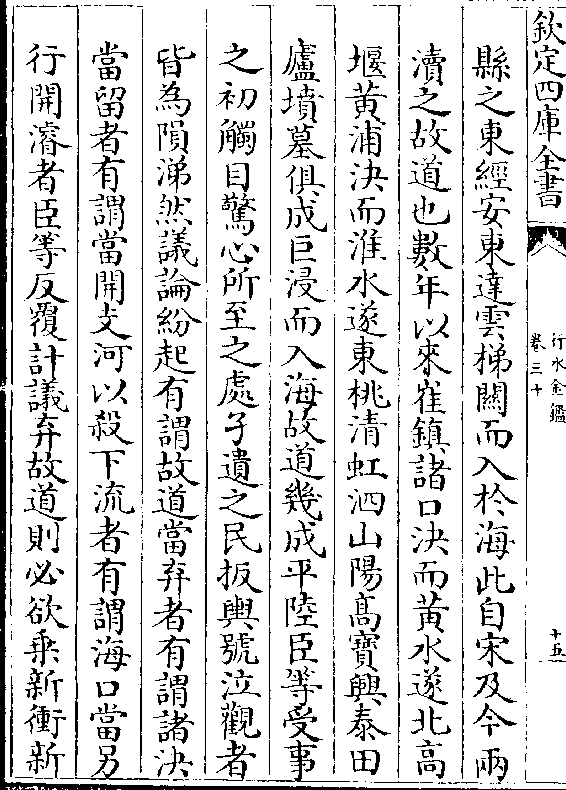 欽定四庫全書
行水金鑑
卷三十
十五
縣之東經安東達雲梯關而入於海此自宋及今兩
瀆之故道也數年以來崔鎮諸口決而黃水遂北高
堰黃浦決而淮水遂東桃清虹泗山陽髙寶興泰田
廬墳墓俱成巨浸而入海故道幾成平陸臣等受事
之初觸目驚心所至之處孑遺之民扳輿號泣觀者
皆為隕涕然議論紛起有謂故道當弃者有謂諸決
當留者有謂當開支河以殺下流者有謂海口當另
行開濬者臣等反覆計議弃故道則必欲乗新衝新